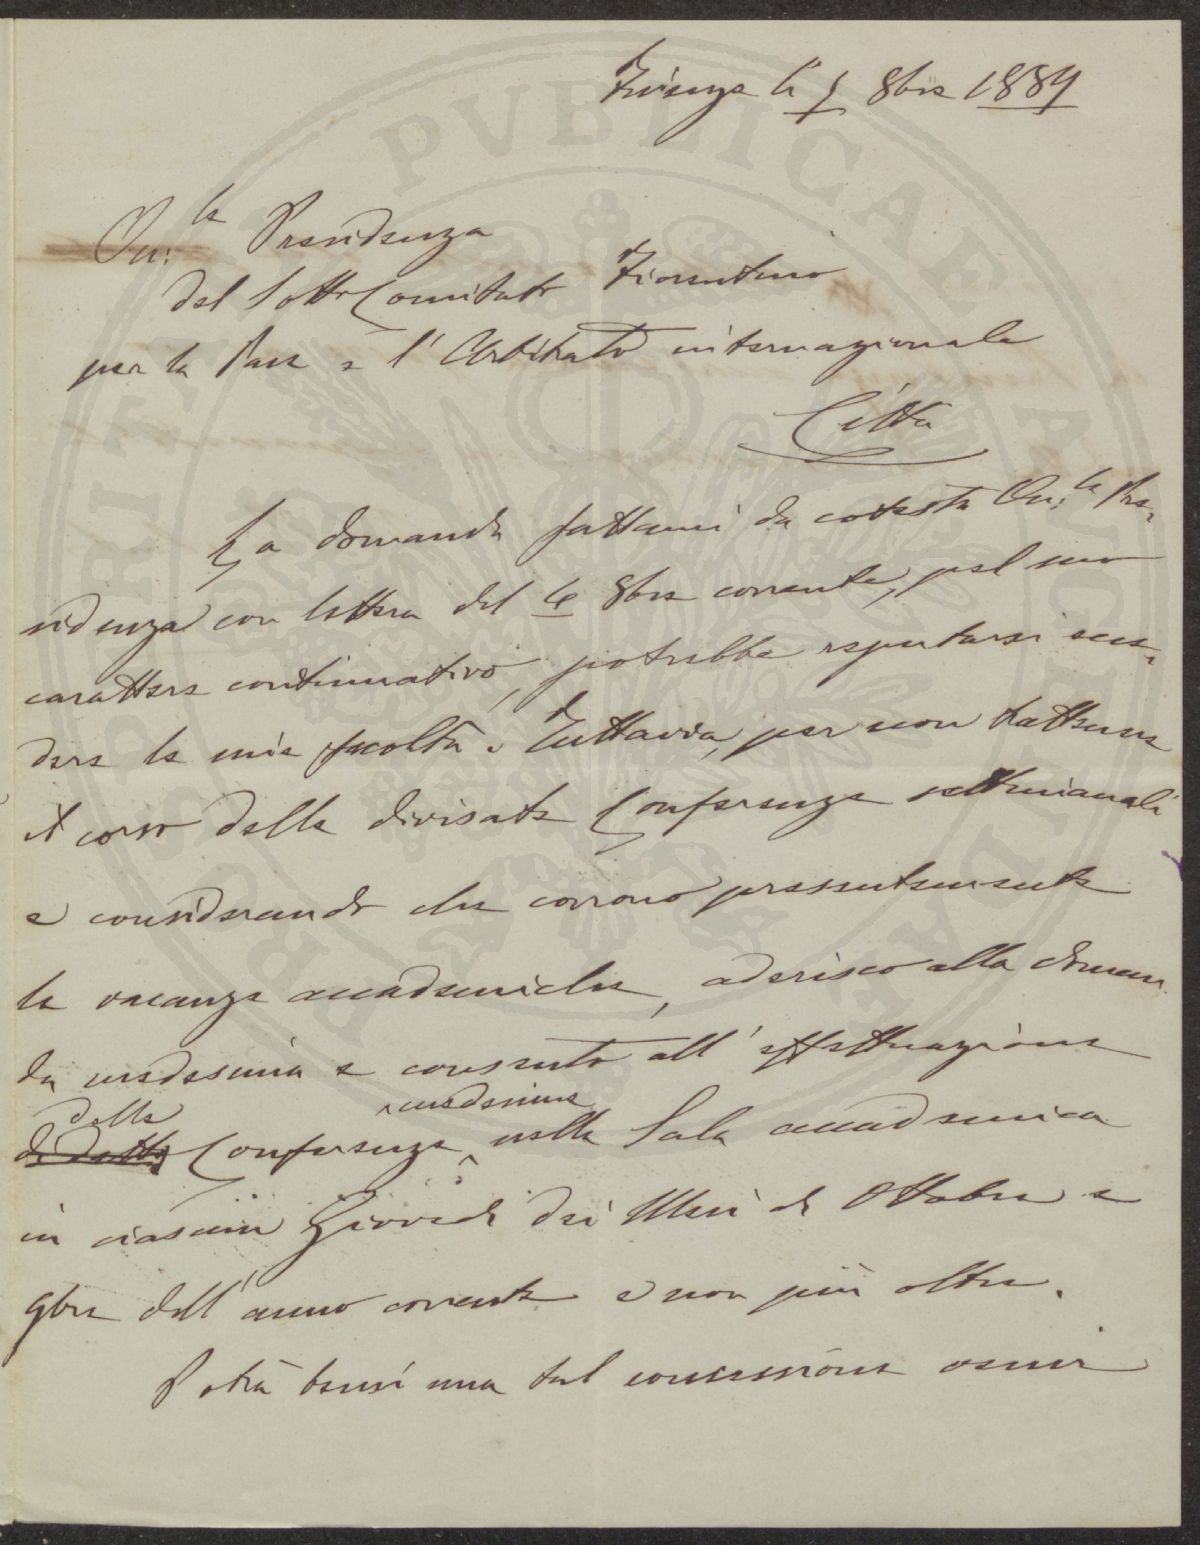 Firenze li 8bre 1889
On.le Presidenza
del Sotto Comitato Fiorentino
per la Pace e l'Arbitrato internazionale
Città
La domanda fattami da cotesta On.le Pre-
sidenza con lettera del 4 8bre corrente, pel suo
carattere continuativo, potrebbe reputarsi ecce-
dere le mie facoltà. Tuttavia, per non trattenere
il corso delle divisate Conferenze settimanali
e considerando che corrono presentemente
le vacanze accademiche, aderisco alla doman-
da medesima e consento all'effettuazione
delle medesime
di dette Conferenze nella Sala accademica
in ciascun Giovedì dei Mesi di Ottobre e
9bre dell'anno corrente e non più oltre.
Potrà bensì una tal concessione
PVBLICAE